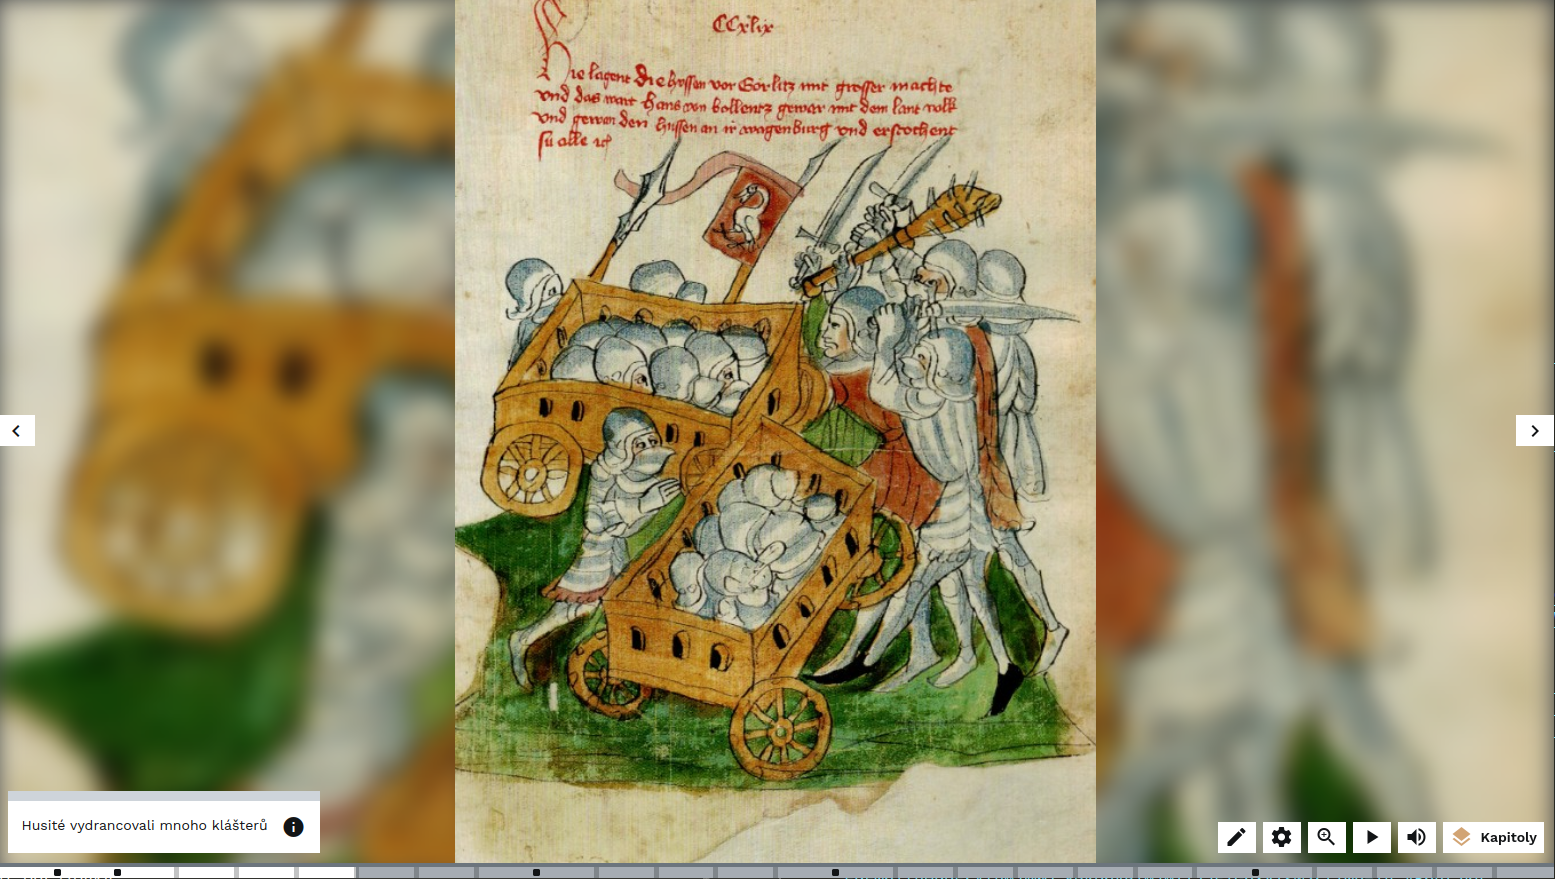 CCxlix
Hie lagent die hussen vor Görlitz mit grosser machte
vnd das wart hans von kollentz gewar mit dem lant volk
vnd gewan den hussen an ir wagenburg vnd erstochent
sü alle
Husité vydrancovali mnoho klášterů
Kapitoly